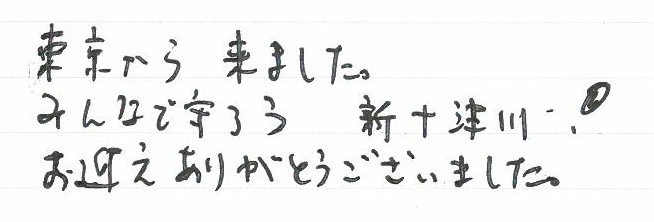 東京から 来ました。
みんなで守ろう 新十津川‥!
お迎えありがとうございました。